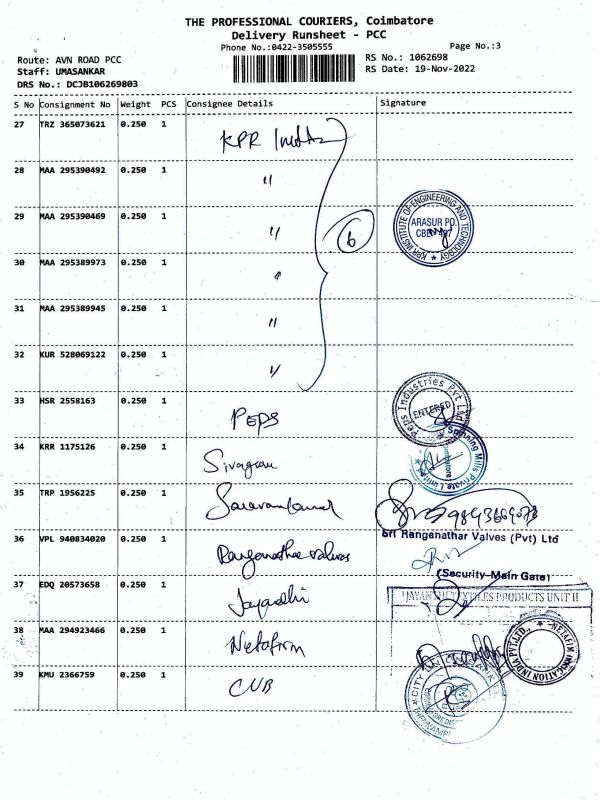 THE PROFESSIONAL COURIERS, Coimbatore
Delivery Runsheet - PCC
Phone No.:0422-3505555
Page No.:3
Route: AVN ROAD PCC
Staff: UMASANKAR
DRS No.: DCJB106269803
RS No.: 1062698
RS Date: 19-Nov-2022
S No Consignment No Weight PCS Consignee Details Signature
27 TRZ 365073621 0.250 1 KPR
28 MAA 295390492 0.250 1 "
29 MAA 295390469 0.250 1 "
6
KPR INSTITUTE OF ENGINEERING AND TECHNOLOGY
ARASUR PO.
30 MAA 295389973 0.250 1 "
31 MAA 295389945 0.250 1 "
32 KUR 528069122 0.250 1 "
33 HSR 2558163 0.250 1 PEPS
Peps Industries Pvt Ltd
ENTERED
34 KRR 1175126 0.250 1
Spinning Mills Private Limited
35 TRP 1956225 0.250 1
36 VPL 940834020 0.250 1 Ranganathar Valves
Sri Rangenathar Valves (Pvt) Ltd
(Security-Main Gate)
37 EDQ 20573658 0.250 1
TEXTILES PRODUCTS UNIT II
38 MAA 294923466 0.250 1 Netafim
NETAFIM IRRIGATION INDIA PVT.LTD.,
39 KMU 2366759 0.250 1 CUB
CITY UNION